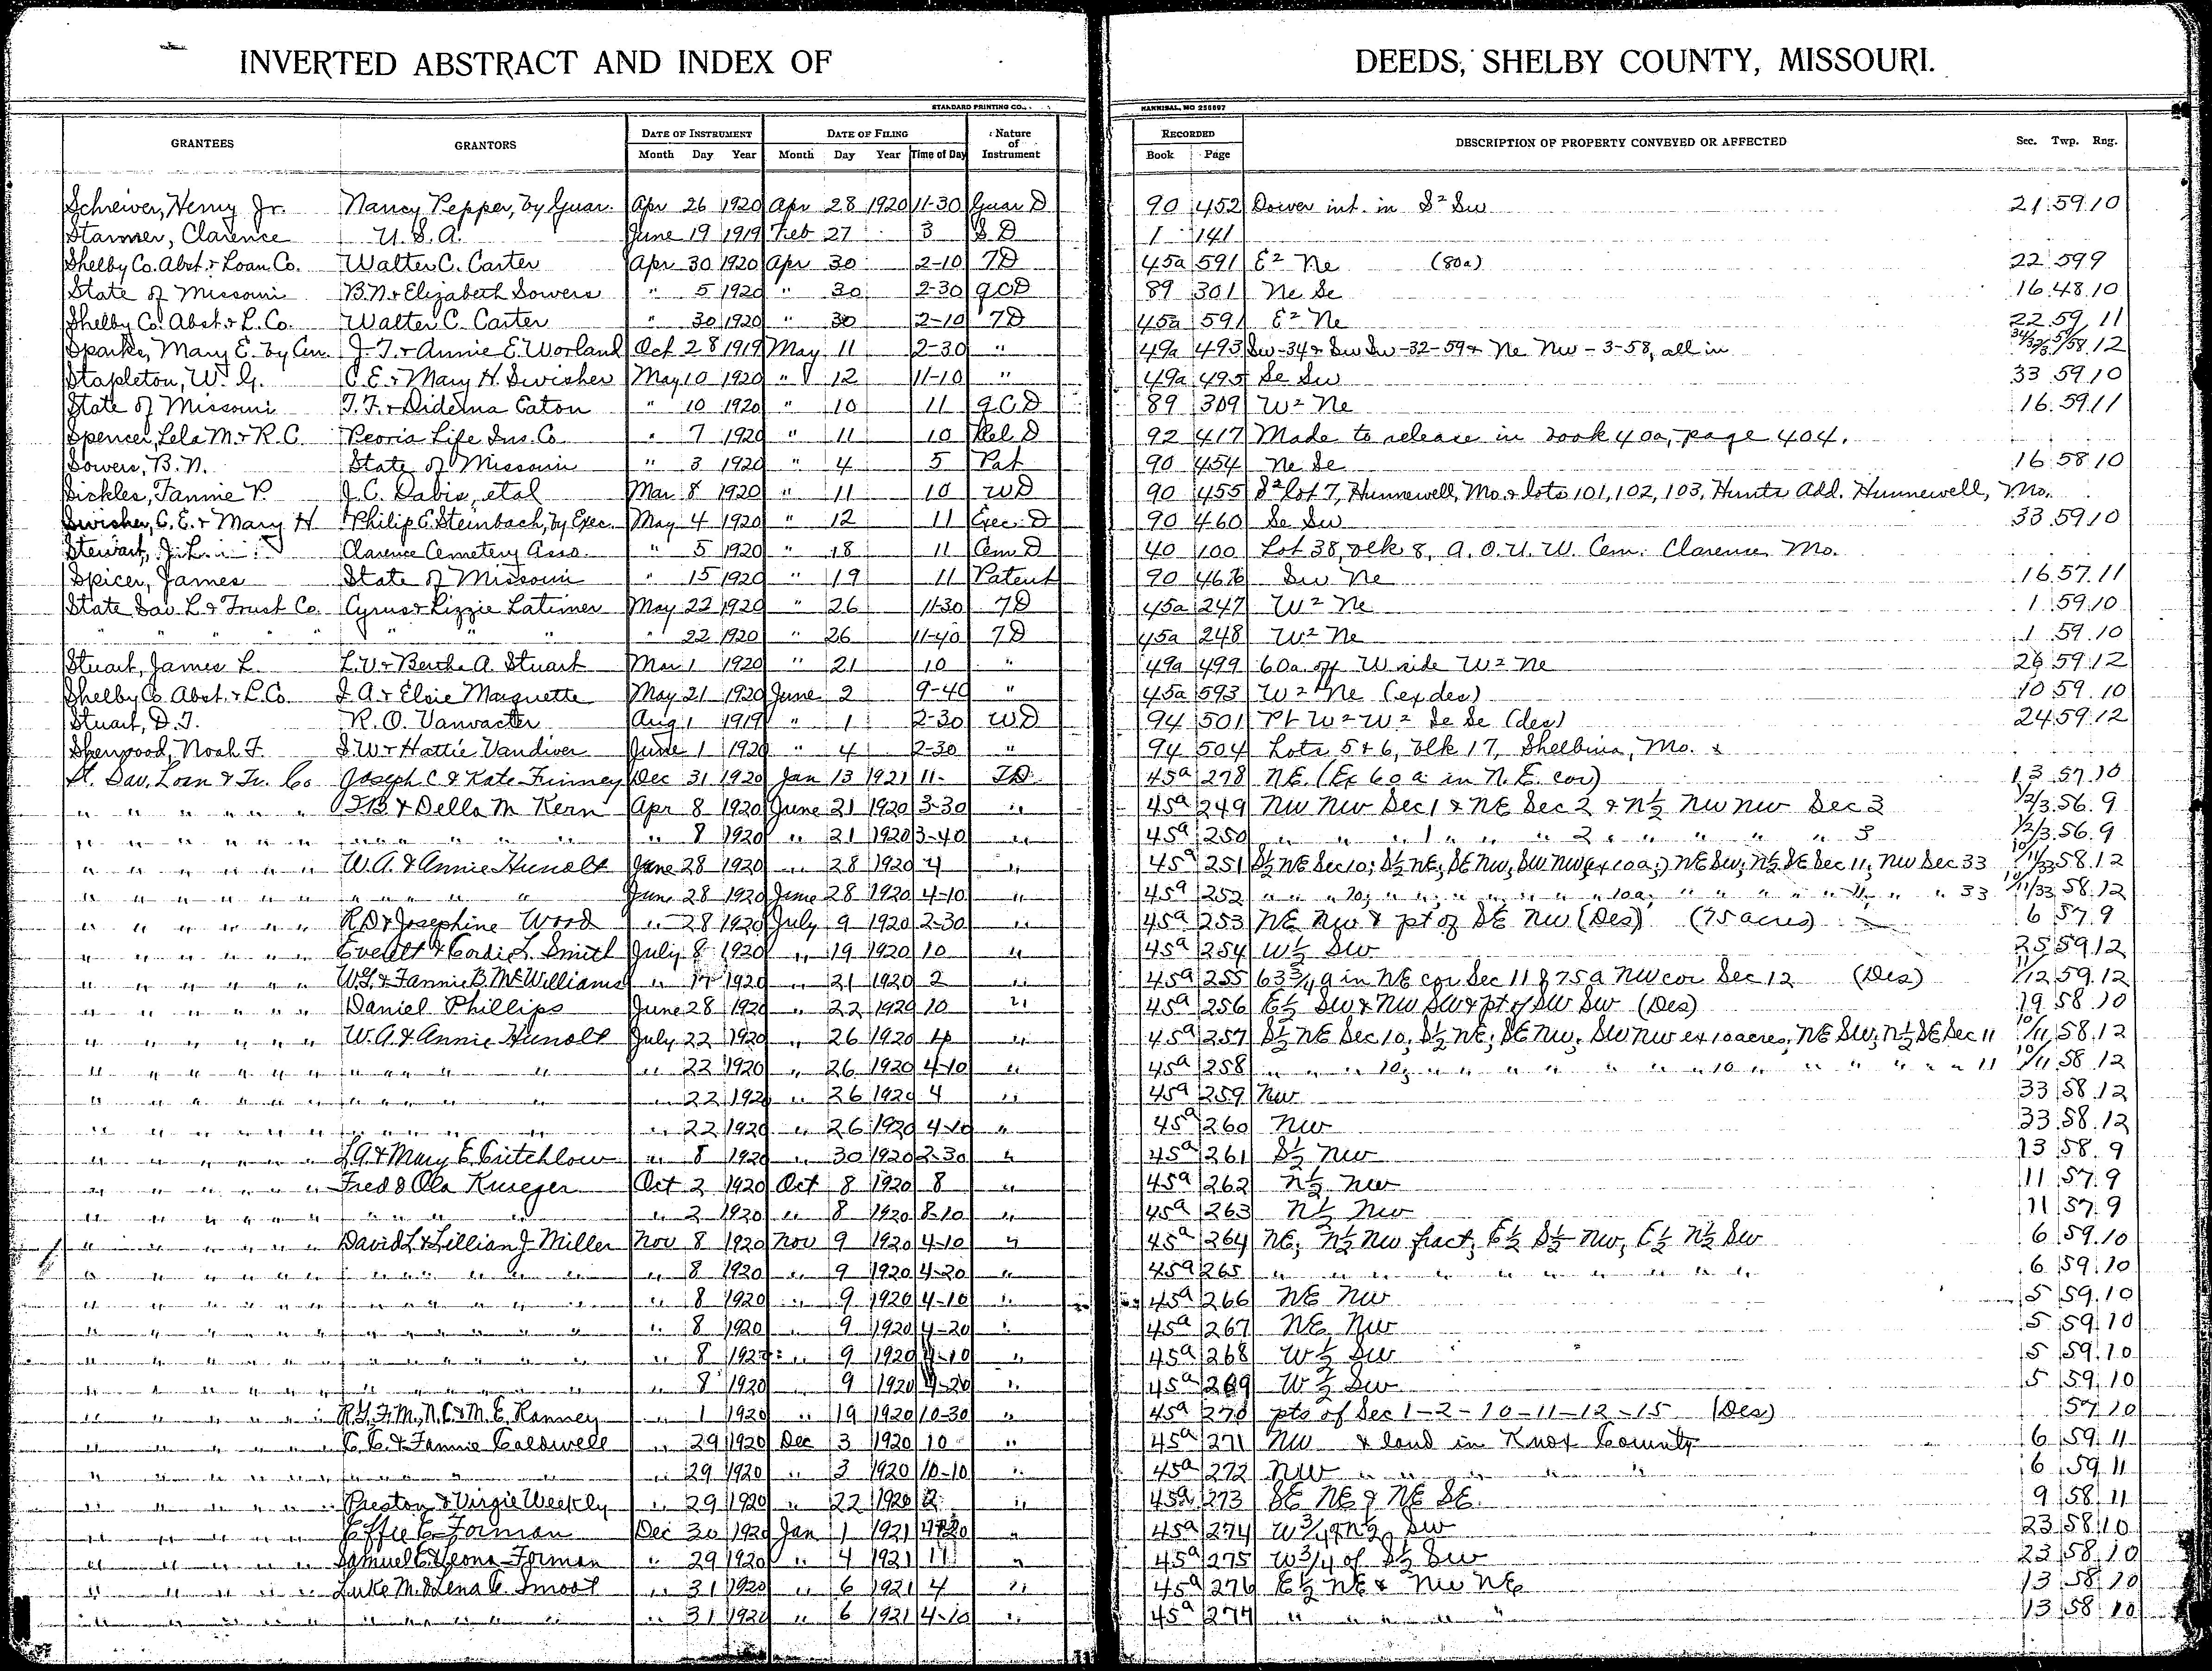 INVERTED ABSTRACT AND INDEX OF DEEDS, SHELBY COUNTY, MISSOURI.
STANDARD PRINTING CO., HANNIBAL, MO 256697
GRANTEES GRANTORS DATE OF INSTRUMENT DATE OF FILING Nature of Instrument RECORDED DESCRIPTION OF PROPERTY CONVEYED OR AFFECTED Sec. Twp. Rng.
Month Day Year Month Day Year Time of Day Book Page
Schreiver, Henry Jr. Nancy Pepper, by Guar. Apr 26 1920 Apr 28 1920 11-30 Guar D 90 452 Dower int. in S² Sw 21 59 10
Starmer, Clarence U.S.A. June 19 1919 Feb 27 3 S D 1 141
Shelby Co. Abst. & Loan Co. Walter C. Carter Apr 30 1920 Apr 30 2-10 TD 45a 591 E² Ne (80a) 22 59 9
State of Missouri B.N. & Elizabeth Sowers " 5 1920 " 30 2-30 QCD 89 301 Ne Se 16 48 10
Shelby Co. Abst. & L. Co. Walter C. Carter " 30 1920 " 30 2-10 TD 45a 591 E² Ne 22 59 11
Sparks, Mary E. by Cur. J.T. & Annie E. Worland Oct 28 1919 May 11 2-30 " 49a 493 Sw-34 & Sw Sw-32-59 & Ne Nw-3-58, all in 34/32/3 59/58 12
Stapleton, W. G. C.E. & Mary H. Swisher May 10 1920 " 12 11-10 " 49a 495 Se Sw 33 59 10
State of Missouri T.F. & Didema Eaton " 10 1920 " 10 11 QCD 89 309 W² Ne 16 59 11
Spencer, Lela M. & R.C. Peoria Life Ins. Co. " 7 1920 " 11 10 Rel D 92 417 Made to release in book 40a, page 404.
Sowers, B.N. State of Missouri " 3 1920 " 4 5 Pat 90 454 Ne Se 16 58 10
Sickles, Fannie P. J.C. Davis, etal Mar 8 1920 " 11 10 WD 90 455 S² lot 7, Hunnewell, Mo. & lots 101, 102, 103, Hunts Add. Hunnewell, Mo.
Swisher, C.E. & Mary H Philip C. Steinbach, by Exec. May 4 1920 " 12 11 Exec. D 90 460 Se Sw 33 59 10
Stewart, J.L. Clarence Cemetery Asso. " 5 1920 " 18 11 Cem D 40 100 Lot 38, blk 8, A.O.U.W. Cem. Clarence, Mo.
Spicer, James State of Missouri " 15 1920 " 19 11 Patent 90 Sw Ne 16 57 11
State Sav. L & Trust Co. Cyrus & Lizzie Latimer May 22 1920 " 26 11-30 TD 45a 247 W² Ne 1 59 10
" " " " " " " " 22 1920 " 26 11-40 TD 45a 248 W² Ne 1 59 10
Stuart, James L. L.V. & Bertha A. Stuart Mar 1 1920 " 21 10 " 49a 499 60a off W side W² Ne 26 59 12
Shelby Co. Abst. & L. Co. J.A. & Elsie Marquette May 21 1920 June 2 9-40 " 45a 593 W² Ne (ex des) 10 59 10
Stuart, D.T. R.O. Vanwacter Aug 1 1919 " 1 2-30 WD 94 501 Pt W² W² Se Se (des) 24 59 12
Sherwood, Noah F. S.W. & Hattie Vandiver June 1 1920 " 4 2-30 " 94 504 Lots 5 & 6, blk 17, Shelbina, Mo. &
St. Sav. Loan & Tr. Co Joseph C. & Kate Finney Dec 31 1920 Jan 13 1921 11- TD 45a 278 NE. (Ex 60 a in N.E. cor) 13 57 10
" " " " " " T.B. & Della M. Kern Apr 8 1920 June 21 1920 3-30 " 45a 249 NW NW Sec 1 & NE Sec 2 & N½ NW NW Sec 3 1/2/3 56 9
" " " " " " " " " " " 8 1920 " 21 1920 3-40 " 45a 250 " " " 1 " " " 2 " " " " " 3 1/2/3 56 9
" " " " " " W.A. & Annie Hunolt June 28 1920 " 28 1920 4 " 45a 251 S½ NE Sec 10; S½ NE; SE NW; SW NW (ex 10a;) NE SW; N½ SE Sec 11; NW Sec 33 10/11/33 58 12
" " " " " " " " " " June 28 1920 June 28 1920 4-10 " 45a 252 " " " 10; " " " " " " " 10a; " " " " " 11; " " 33 10/11/33 58 12
" " " " " " R.D. & Josephine Wood " 28 1920 July 9 1920 2-30 " 45a 253 NE NW & pt of SE NW (Des) (75 acres) 6 57 9
" " " " " " Everett & Cordie L. Smith July 8 1920 " 19 1920 10 " 45a 254 W½ SW 25 59 12
" " " " " " W.G. & Fannie B. McWilliams " 17 1920 " 21 1920 2 " 45a 255 63¾ a in NE cor Sec 11 & 75a NW cor Sec 12 (Des) 11/12 59 12
" " " " " " Daniel Phillips June 28 1920 " 22 1920 10 " 45a 256 E½ SW & NW SW & pt of SW SW (Des) 19 58 10
" " " " " " W.A. & Annie Hunolt July 22 1920 " 26 1920 4 " 45a 257 S½ NE Sec 10; S½ NE; SE NW; SW NW ex 10 acres, NE SW; N½ SE Sec 11 10/11 58 12
" " " " " " " " " " " 22 1920 " 26 1920 4-10 " 45a 258 " " " 10; " " " " " " " 10 " " " " " 11 10/11 58 12
" " " " " " " " " " " 22 1920 " 26 1920 4 " 45a 259 NW 33 58 12
" " " " " " " " " " " 22 1920 " 26 1920 4-10 " 45a 260 NW 33 58 12
" " " " " " L.A. & Mary E. Critchlow " 8 1920 " 30 1920 2-30 " 45a 261 S½ NW 13 58 9
" " " " " " Fred & Ola Krueger Oct 2 1920 Oct 8 1920 8 " 45a 262 N½ NW 11 57 9
" " " " " " " " " " " 2 1920 " 8 1920 8-10 " 45a 263 N½ NW 11 57 9
" " " " " " David L. & Lillian J. Miller Nov 8 1920 Nov 9 1920 4-10 " 45a 264 NE; N½ NW fract; E½ S½ NW; E½ N½ SW 6 59 10
" " " " " " " " " " " 8 1920 " 9 1920 4-20 " 45a 265 " " " " " " " " " " 6 59 10
" " " " " " " " " " " 8 1920 " 9 1920 4-10 " 45a 266 NE NW 5 59 10
" " " " " " " " " " " 8 1920 " 9 1920 4-20 " 45a 267 NE NW 5 59 10
" " " " " " " " " " " 8 1920 " 9 1920 4-10 " 45a 268 W½ SW 5 59 10
" " " " " " " " " " " 8 1920 " 9 1920 4-20 " 45a 269 W½ SW 5 59 10
" " " " " " R.G. F.M., N.C. & M.E. Ranney " 1 1920 " 19 1920 10-30 " 45a 270 pts of Sec 1-2-10-11-12-15 (Des) 57 10
" " " " " " C.C. & Fannie Caldwell " 29 1920 Dec 3 1920 10 " 45a 271 NW & land in Knox County 6 59 11
" " " " " " " " " " " 29 1920 " 3 1920 10-10 " 45a 272 NW " " " " " 6 59 11
" " " " " " Preston & Virgie Weekly " 29 1920 " 22 1920 2 " 45a 273 SE NE & NE SE 9 58 11
" " " " " " Effie E. Forman Dec 30 1920 Jan 1 1921 " 45a 274 W¾ of N½ SW 23 58 10
" " " " " " Samuel E. & Leona Forman " 29 1920 " 4 1921 11 " 45a 275 W 3/4 of S½ SW 23 58 10
" " " " " " Luke M. & Lena C. Smoot " 31 1920 " 6 1921 4 " 45a 276 E½ NE & NW NE 13 58 10
" " " " " " " " " " " 31 1920 " 6 1921 4-10 " 45a 277 " " " " " 13 58 10